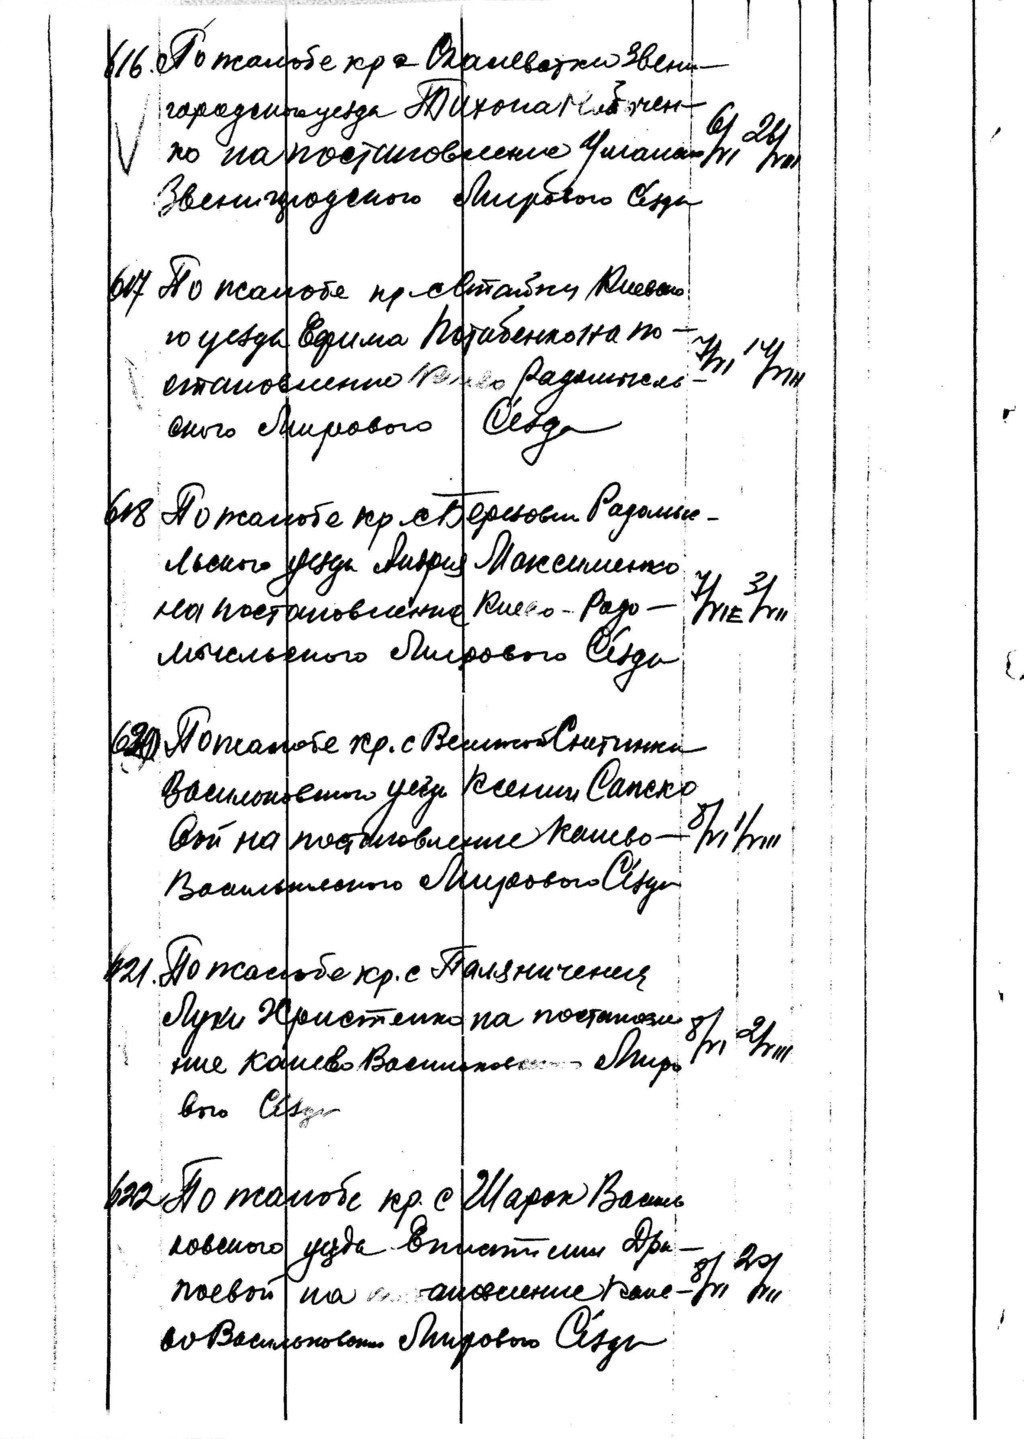 616. По жалобе кр с Ольшевотки Звени—
городского уезда Тихона
ко на постановление Уманско
Звенигородского Мирового Сезда
6/VI 26/VIII
617 По жалобе кр. с Стайки Киевско
го уезда Ефима Потабенко на по—
становление Киево Радомысль—
ского Мирового Сезда
7/VI 14/VIII
618 По жалобе кр. с Березовки Радомы—
льского уезда Андрея Максименко
на постановление Киево-Радо—
мысльского Мирового Сезда
7/VII 3/VII
620 По жалобе кр. с Великой Снитинки
Васильковского уезда Ксении Сапско
вой на постановление Канево—
Васильковского Мирового Сезда
8/VI 1/VIII
621. По жалобе кр. с Паляниченец
Луки Христенко на постановле
ние Канево Васильковского Миро
вого Сезда
8/VI 2/VIII
622 По жалобе кр. с Шарок Василь
ковского уезда Епистимии Дра—
поевой на постановление Кане—
во Васильковского Мирового Сезда
8/VI 20/VII